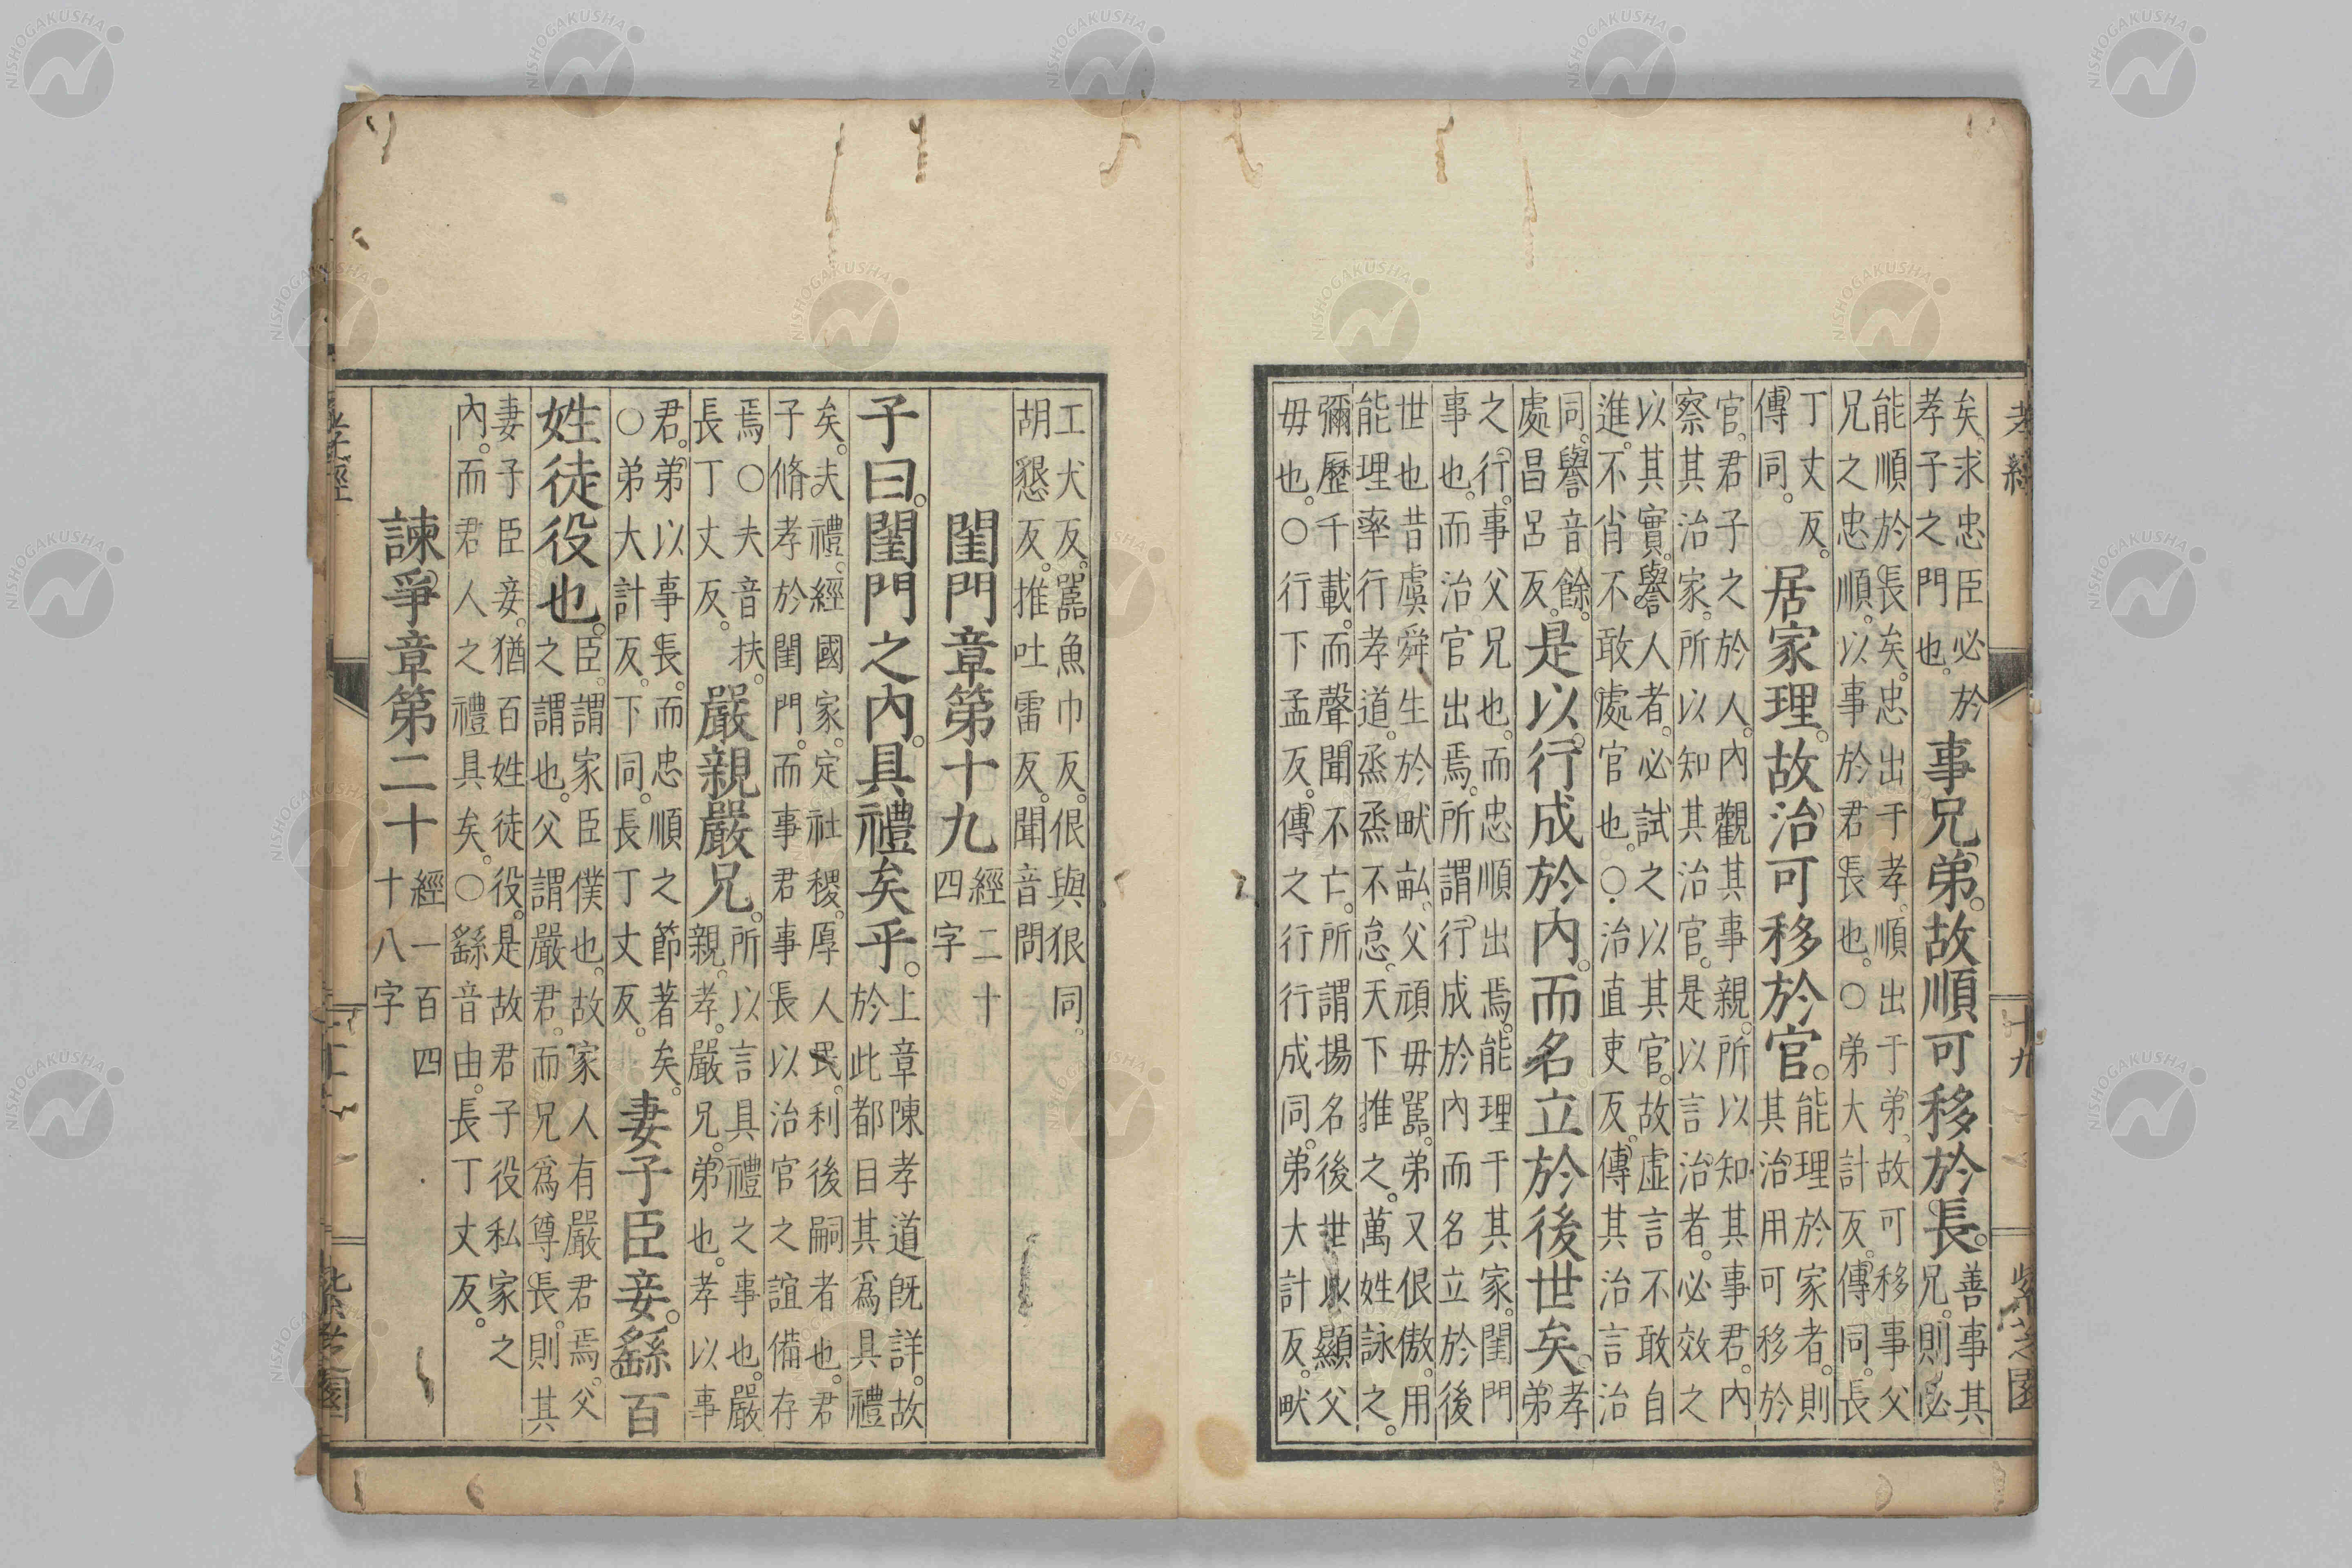 孝經 十九 紫芝園
矣求忠臣必於
孝子之門也。
事兄弟。故順可移於長。
善事其
兄。則必
能順於長矣。忠出于孝。順出于弟。故可移事父
兄之忠順。以事於君長也。○弟大計反。傳同。長
丁丈反。
傳同。○
居家理。故治可移於官。
能理於家者。則
其治用可移於
官。君子之於人。內觀其事親。所以知其事君。內
察其治家。所以知其治官。是以言治者。必效之
以其實。譽人者。必試之以其官。故虛言不敢自
進。不肖不敢處官也。○治直吏反。傳其治言治
同。譽音餘。
處昌呂反。
是以。行成於內。而名立於後世矣。
孝
弟
之行。事父兄也。而忠順出焉。能理于其家。閨門
事也。而治官出焉。所謂行成於內而名立於後
世也昔虞舜生於畎畝。父頑毋嚚。弟又佷傲。用
能理率行孝道。烝烝不怠。天下推之。萬姓詠之。
彌歷千載。而聲聞不亡。所謂揚名後世以顯父
毋也。○行下孟反。傳之行行成同。弟大計反。畎
工犬反。嚚魚巾反。佷與狠同。
胡懇反。推吐雷反。聞音問
閨門章第十九
經二十
四字
子曰。閨門之內。具禮矣乎。
上章陳孝道既詳。故
於此都目其爲具禮
矣。夫禮。經國家。定社稷。厚人民。利後嗣者也。君
子脩孝於閨門。而事君事長以治官之誼備存
焉○夫音扶。
長丁丈反。
嚴親嚴兄。
所以言具禮之事也。嚴
親。孝。嚴兄。弟也。孝以事
君。弟以事長。而忠順之節著矣。
○弟大計反。下同。長丁丈反。
妻子臣妾。繇百
姓徒役也。
臣。謂家臣僕也。故家人有嚴君焉。父
之謂也。父謂嚴君。而兄爲尊長。則其
妻子臣妾。猶百姓徒役。是故君子役私家之
內。而君人之禮具矣。○繇音由。長丁丈反。
諫爭章第二十
經一百四
十八字
孝經 紫芝園
NISHOGAKUSHA